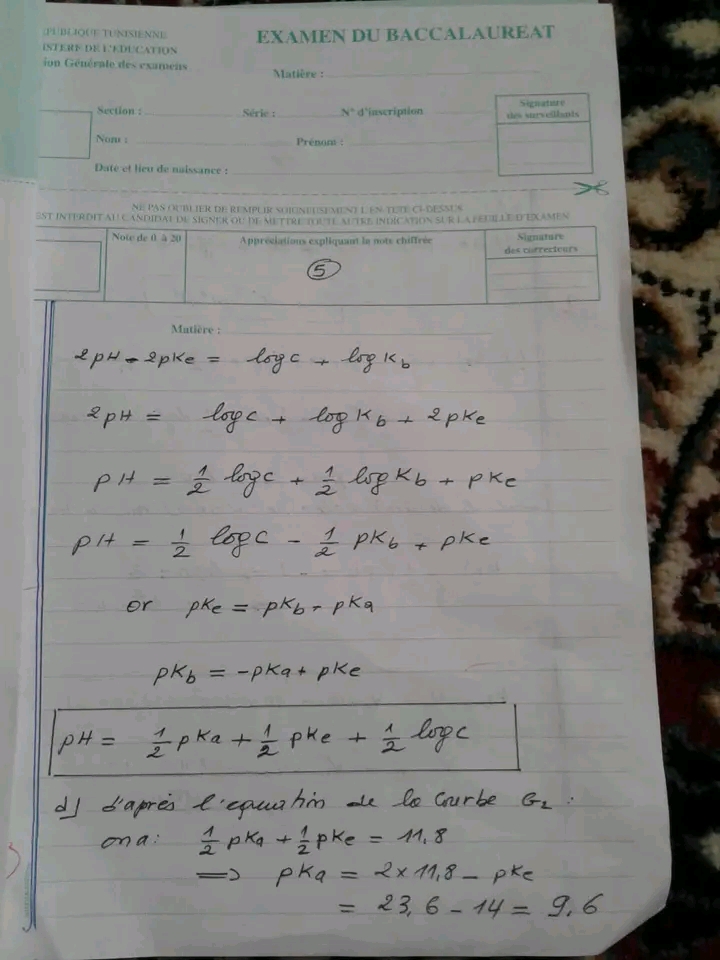 EPUBLIQUE TUNISIENNE
EXAMEN DU BACCALAUREAT
ISTERE DE L'EDUCATION
ion Générale des examens
Matière :
Section :
Série :
N° d'inscription
Signature
des surveillants
Nom :
Prénom :
Date et lieu de naissance :
NE PAS OUBLIER DE REMPLIR SOIGNEUSEMENT L'EN-TETE CI-DESSUS
EST INTERDIT AU CANDIDAT DE SIGNER OU DE METTRE TOUTE AUTRE INDICATION SUR LA FEUILLE D'EXAMEN
Note de 0 à 20
Appréciations expliquant la note chiffrée
Signature
des correcteurs
5
Matière :
2pH - 2pKe = logc + logKb
2pH = logc + logKb + 2pKe
pH = 1/2 logc + 1/2 logKb + pKe
pH = 1/2 logc - 1/2 pKb + pKe
or pKe = pKb + pKa
pKb = -pKa + pKe
pH = 1/2 pKa + 1/2 pKe + 1/2 logc
d) d'après l'equation de la courbe G2 :
ona: 1/2 pKa + 1/2 pKe = 11,8
⟹ pKa = 2×11,8 - pKe
= 23,6 - 14 = 9,6